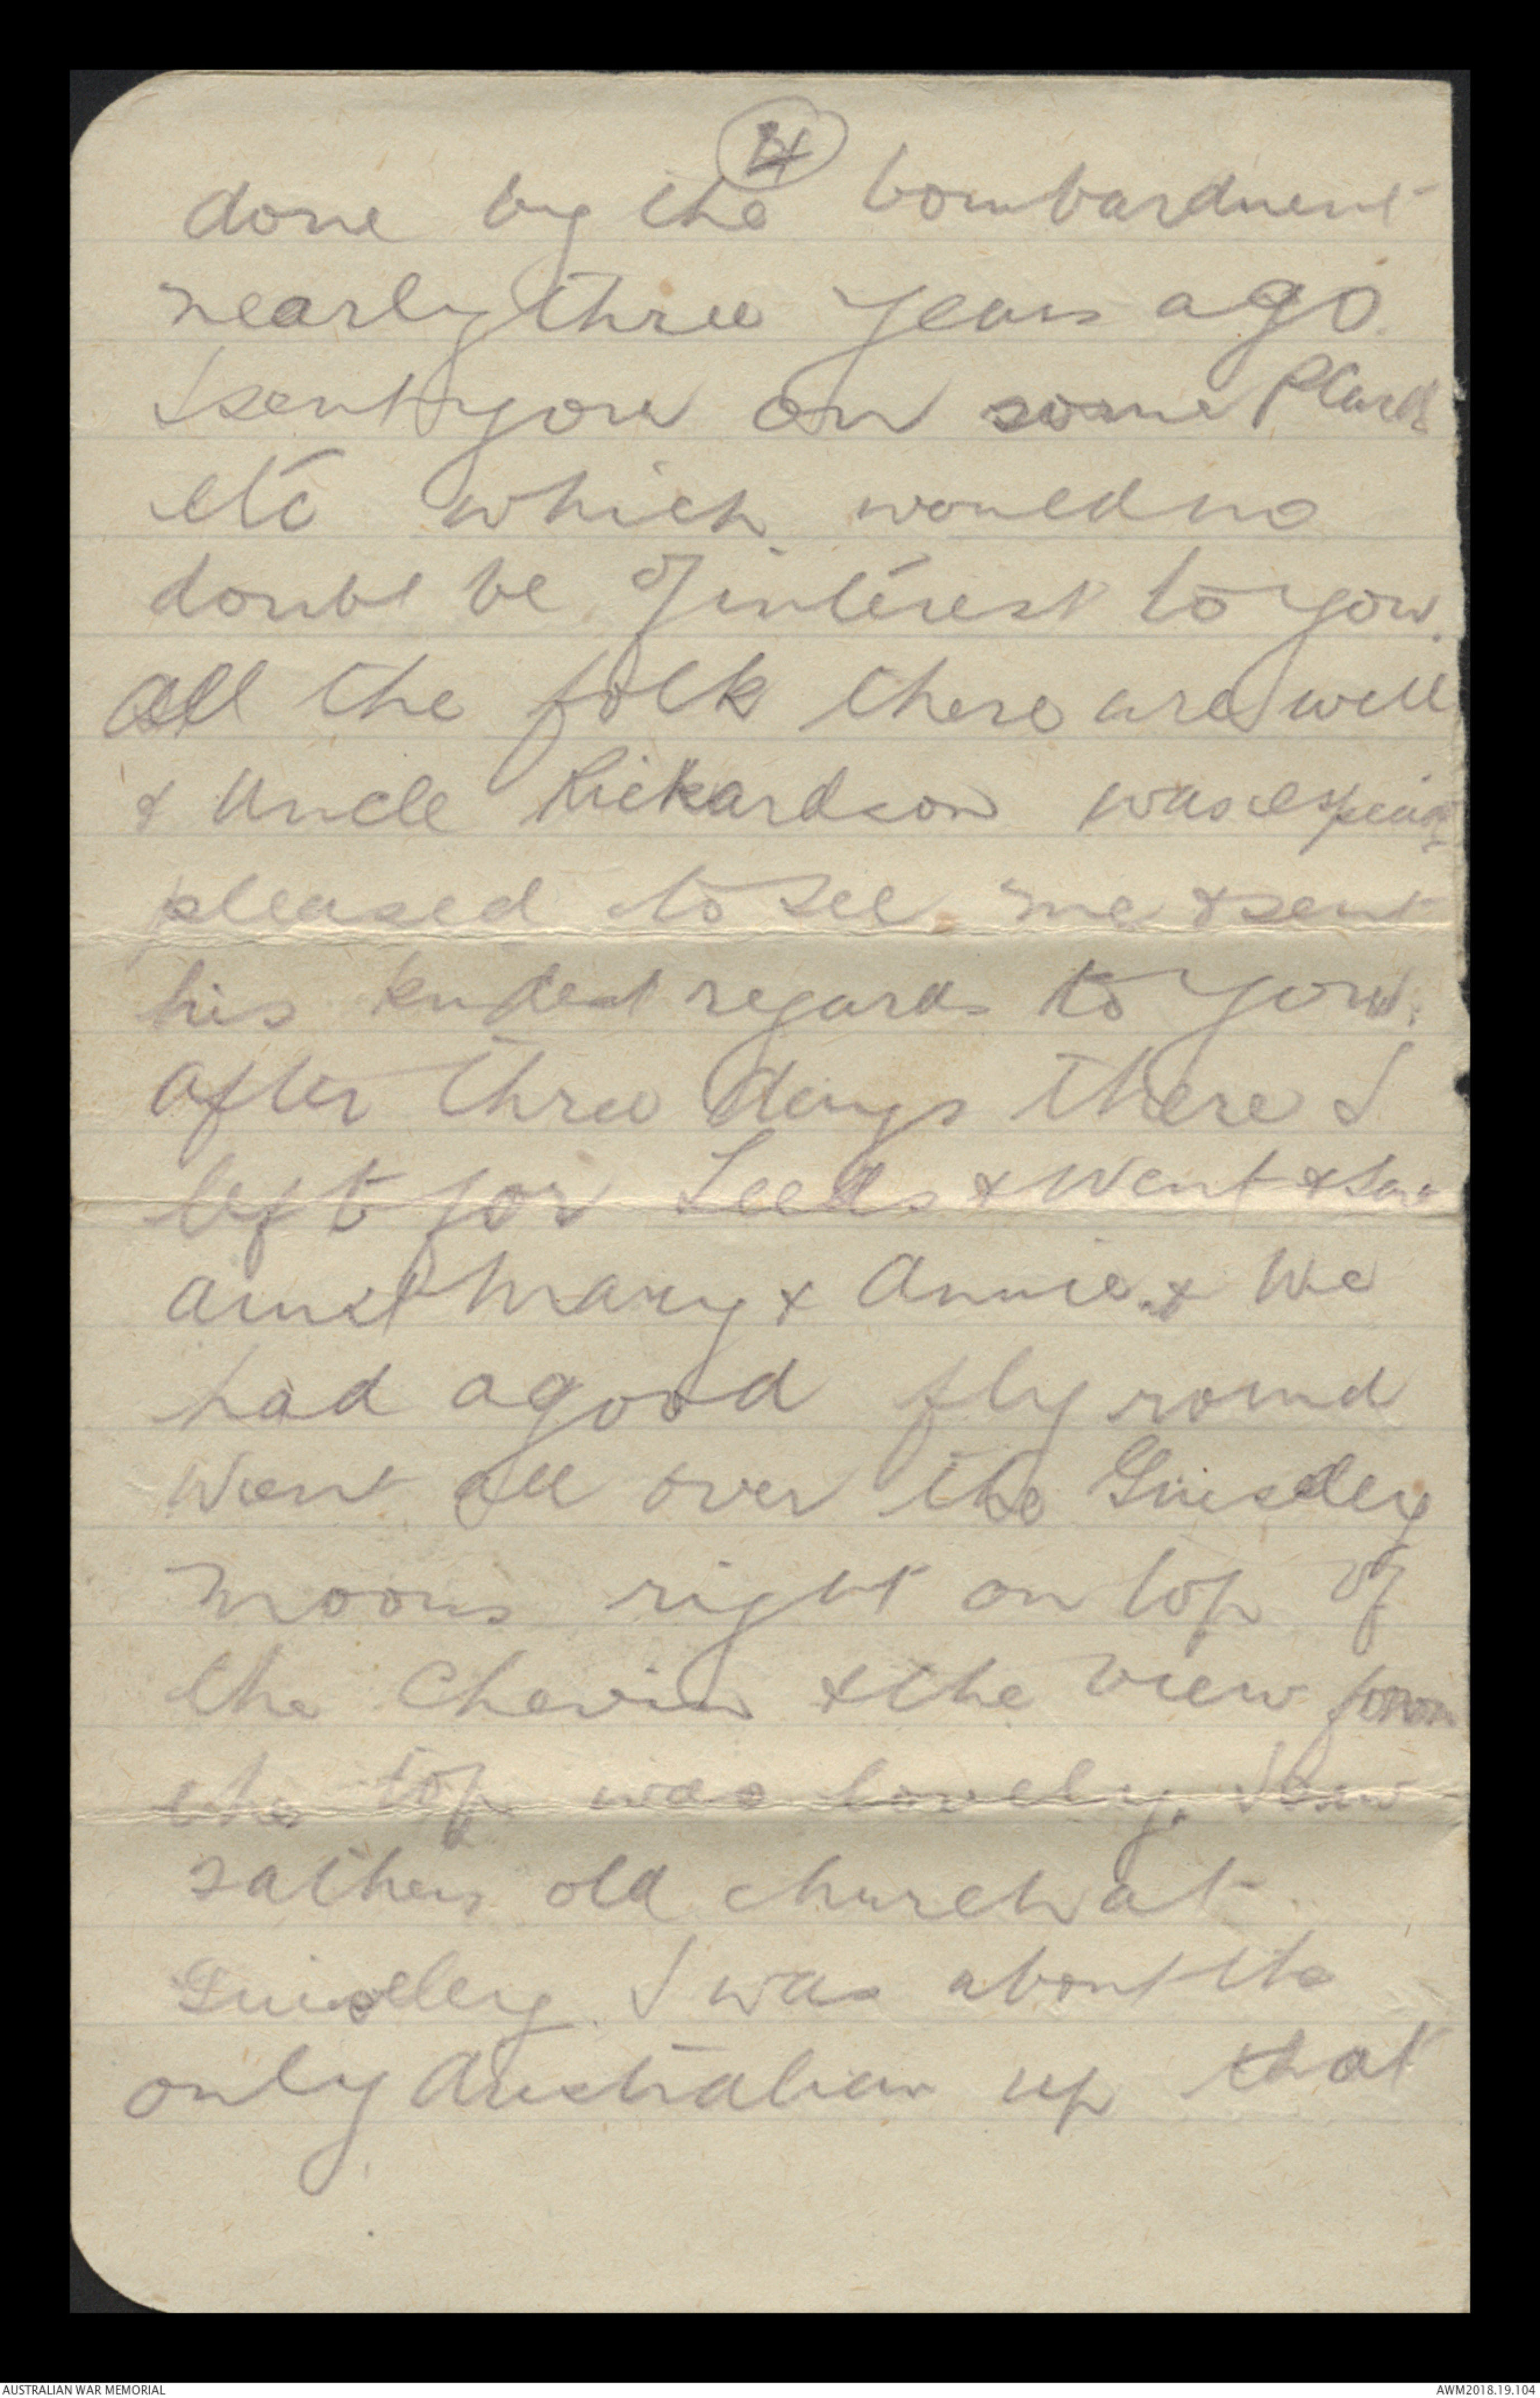 4
done by the bombardment
nearly three years ago.
I sent you on some P Cards
etc which would no
doubt be of interest to you.
All the folk there are well
& Uncle Rickardson was
pleased to see me & sent
his kindest regards to you.
After three days there I
left for Leeds & went & saw
Aunt Mary & Annie & We
had a good fly round
Went all over the Guiseley
moors right on top of
the Chevin & the view from
the top was lovely. Saw
Fathers old church at
Guiseley. I was about the
only Australian up that
AUSTRALIAN WAR MEMORIAL
AWM2018.19.104